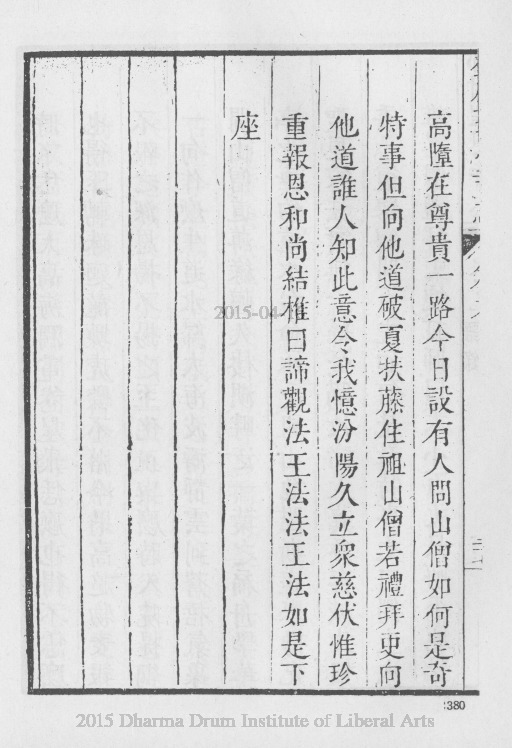 高墮在尊貴一路今日設有人問山僧如何是奇
特事但向他道破夏扶藤住祖山僧若禮拜更向
他道誰人知此意令我憶汾陽久立眾慈伏惟珍
重報恩和尚結椎曰諦觀法王法法王法如是下
座
2015-04-
380
2015 Dharma Drum Institute of Liberal Arts